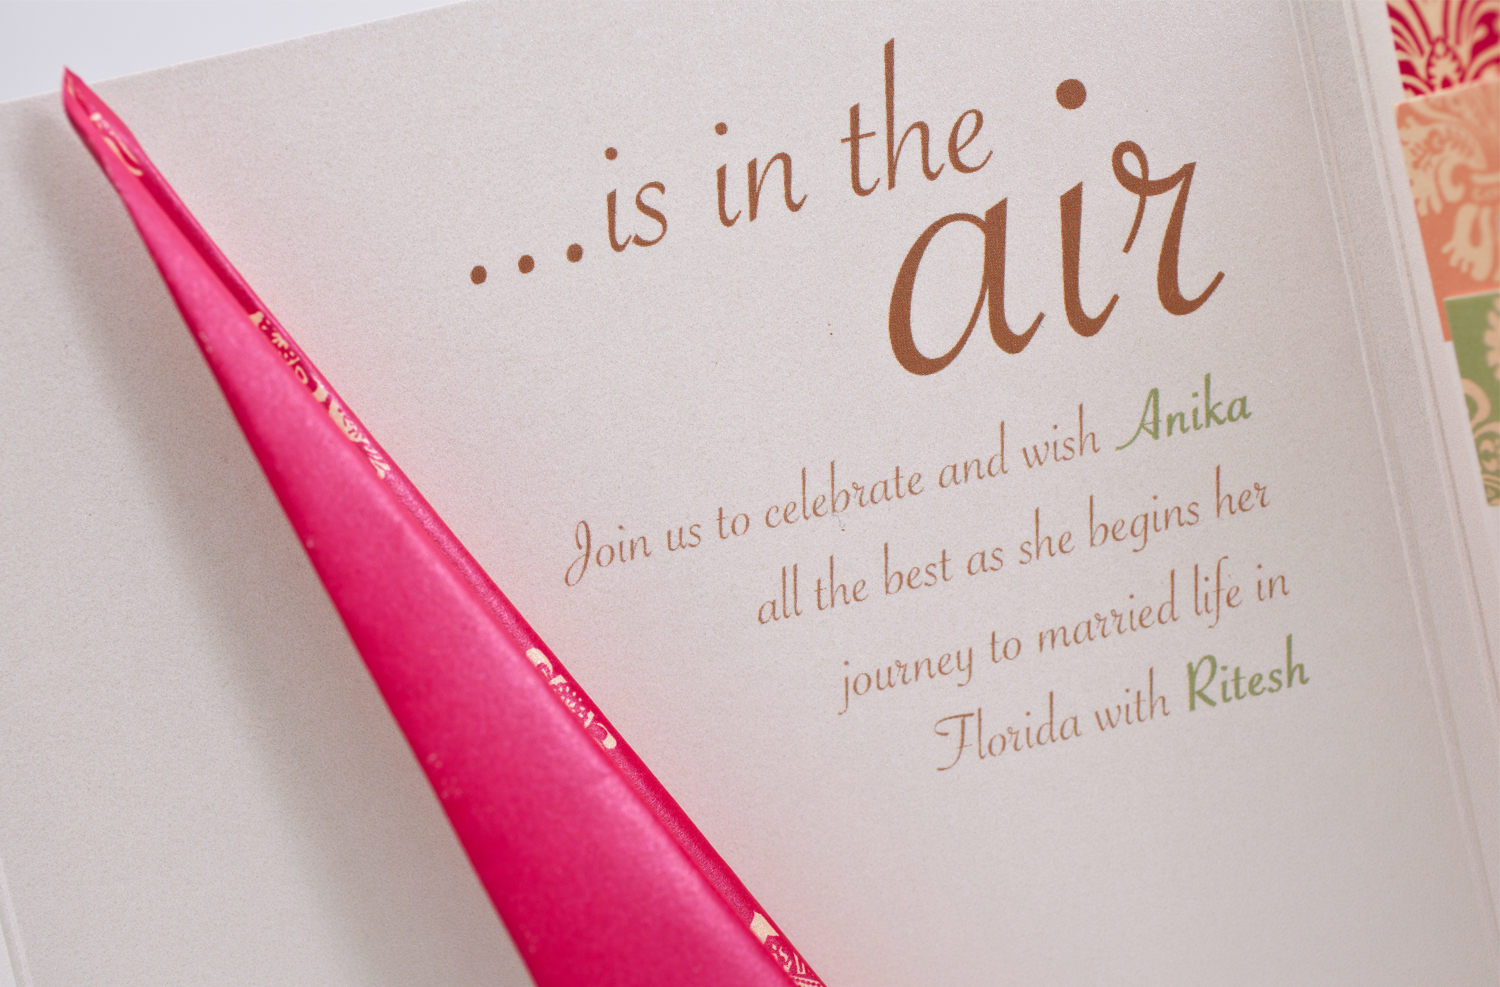 ...is in the
air
Join us to celebrate and wish Anika
all the best as she begins her
journey to married life in
Florida with Ritesh